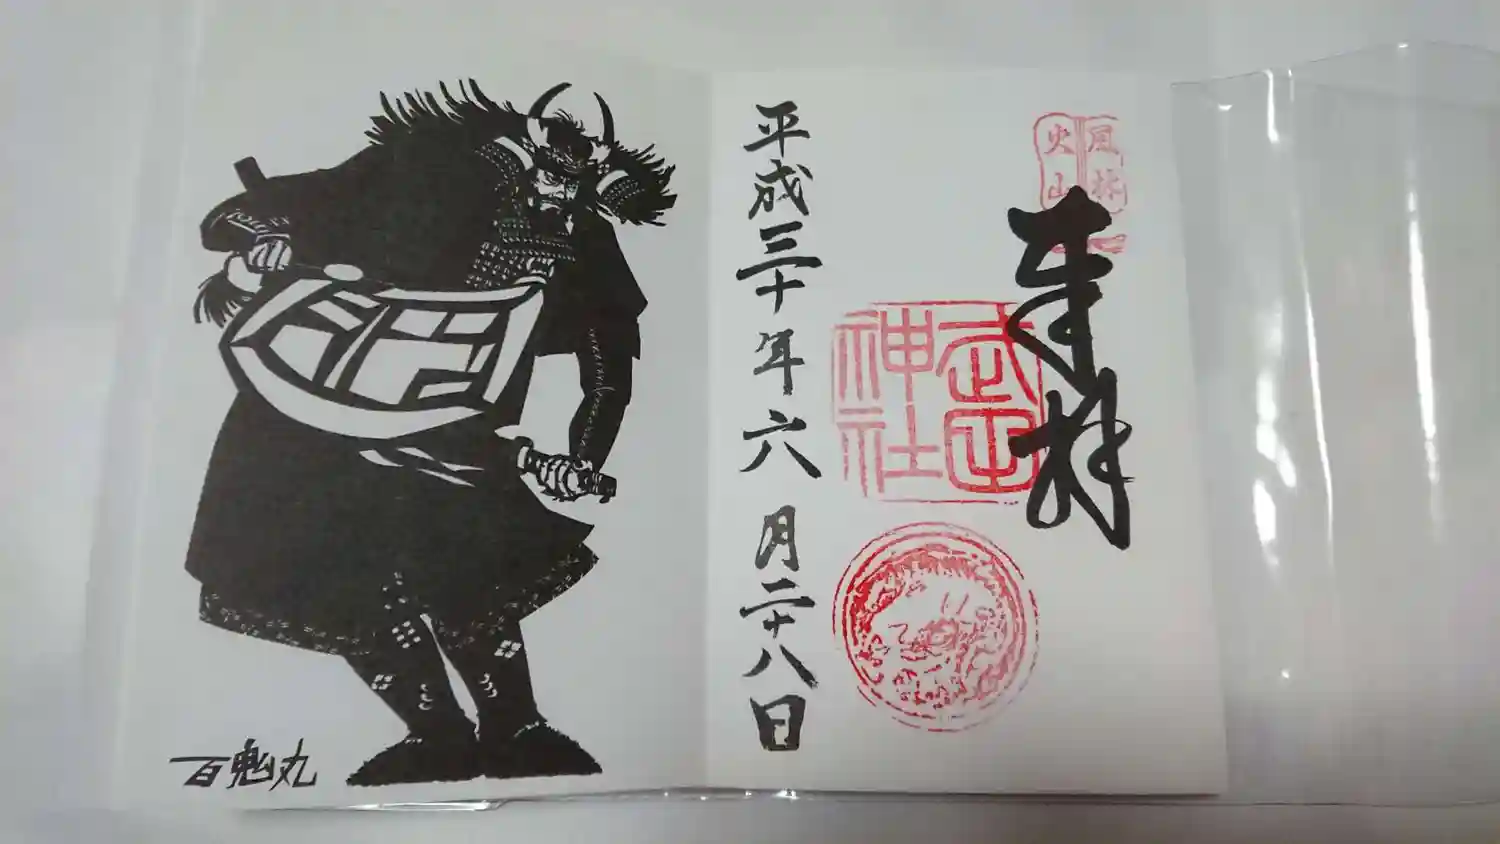 風林
火山
奉拝
武田
神社
平成三十年六月二十八日
百鬼丸